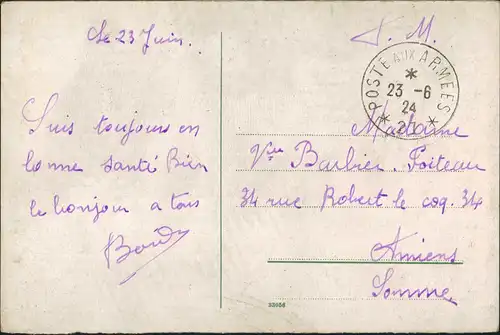 Le 23 Juin.
Suis toujours en
bonne santé Bien
le bonjour a tous
F. M.
POSTE AUX ARMEES
23 -6
24
Madame
Vve Barbier-Foiteau
34 rue Robert le coq. 34
Amiens
Somme